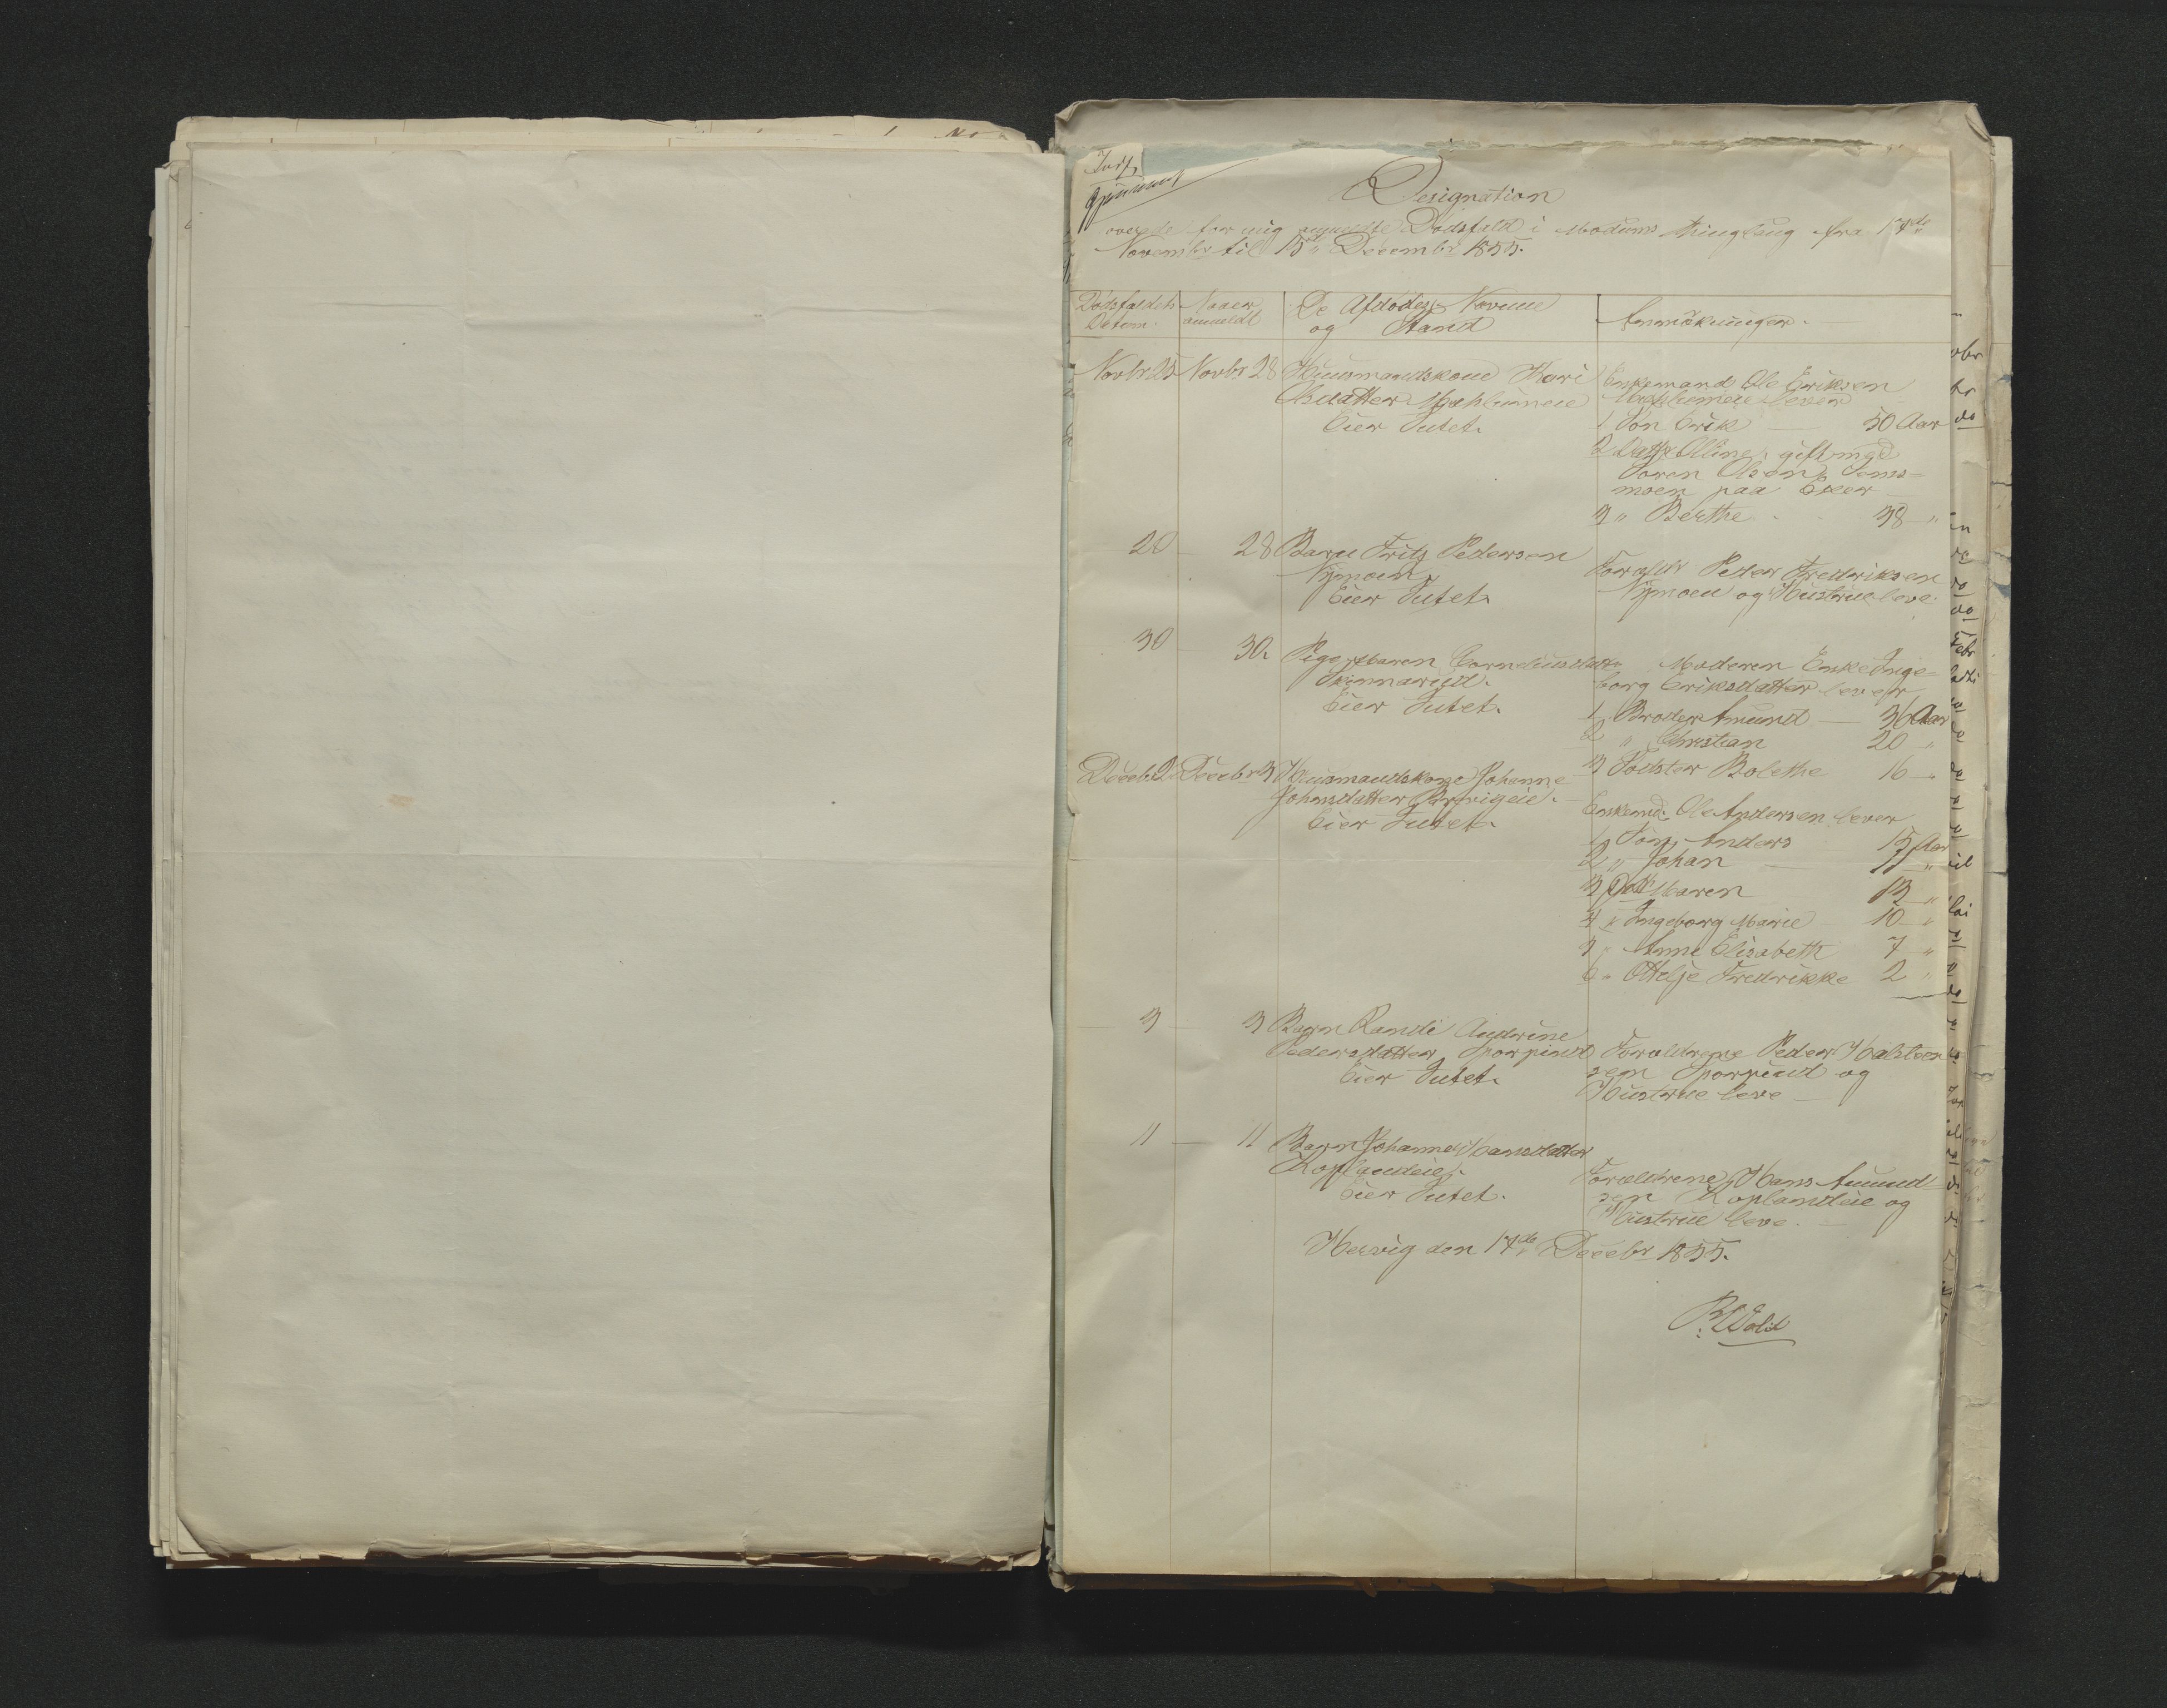 Designation
over de for mig anmeldte Dødsfald i Modums Thinglaug fra 17de
Novembr til 15de Decembr 1855.
Dødsfaldets Datum.
Naaer anmeldt
De Afdødes Navne og Stand
Anmærkninger.
Novbr 25 Novbr 28 Huusmandskone Kari
Olsdatter
Eier Intet.
Enkemand Ole Eriksen
lever
1 Søn Erik 30 Aar
2 Datter Oline, gift med
Søren Olsen
moen paa Eker
3 " Berthe 38 "
20 — 28 Barn Frits Pedersen
Nymoen,
Eier Intet.
Forældr Peder Fredriksen
Nymoen og Hustrue leve.
30 — 30. Pige Maren Corneliusdatter
Skinnarud.
Eier Intet.
Moderen Enke Inge-
borg Eriksdatter lever
1, Broder Amund — 36 Aar
2 " Christian 20 "
3 Sødster Bolethe 16 "
Decbr 2 Decebr 3 Huusmandskone Johanne
Johnsdatter
Eier Intet.
Enkemd. Ole Andersen lever
1, Søn, Anders 15 Aar
2 " Johan — "
3 Dattr Maren 13 "
4 " Ingeborg Marie 10 "
5 " Anne Elisabeth 7 "
6 " Otelje Fredrikke 2 "
3 — 3 Barn Randi Andrine
Pedersdatter
Eier Intet.
Forældrene Peder Halsteen
sen og
Hustrue leve —
11 — 11 Barn Johanne Hansdatter
Koplandeie.
Eier Intet.
Forældrene Hans Amund
sen Koplandeie og
Hustrue leve. —
Hervig den 17de Decebr 1855.